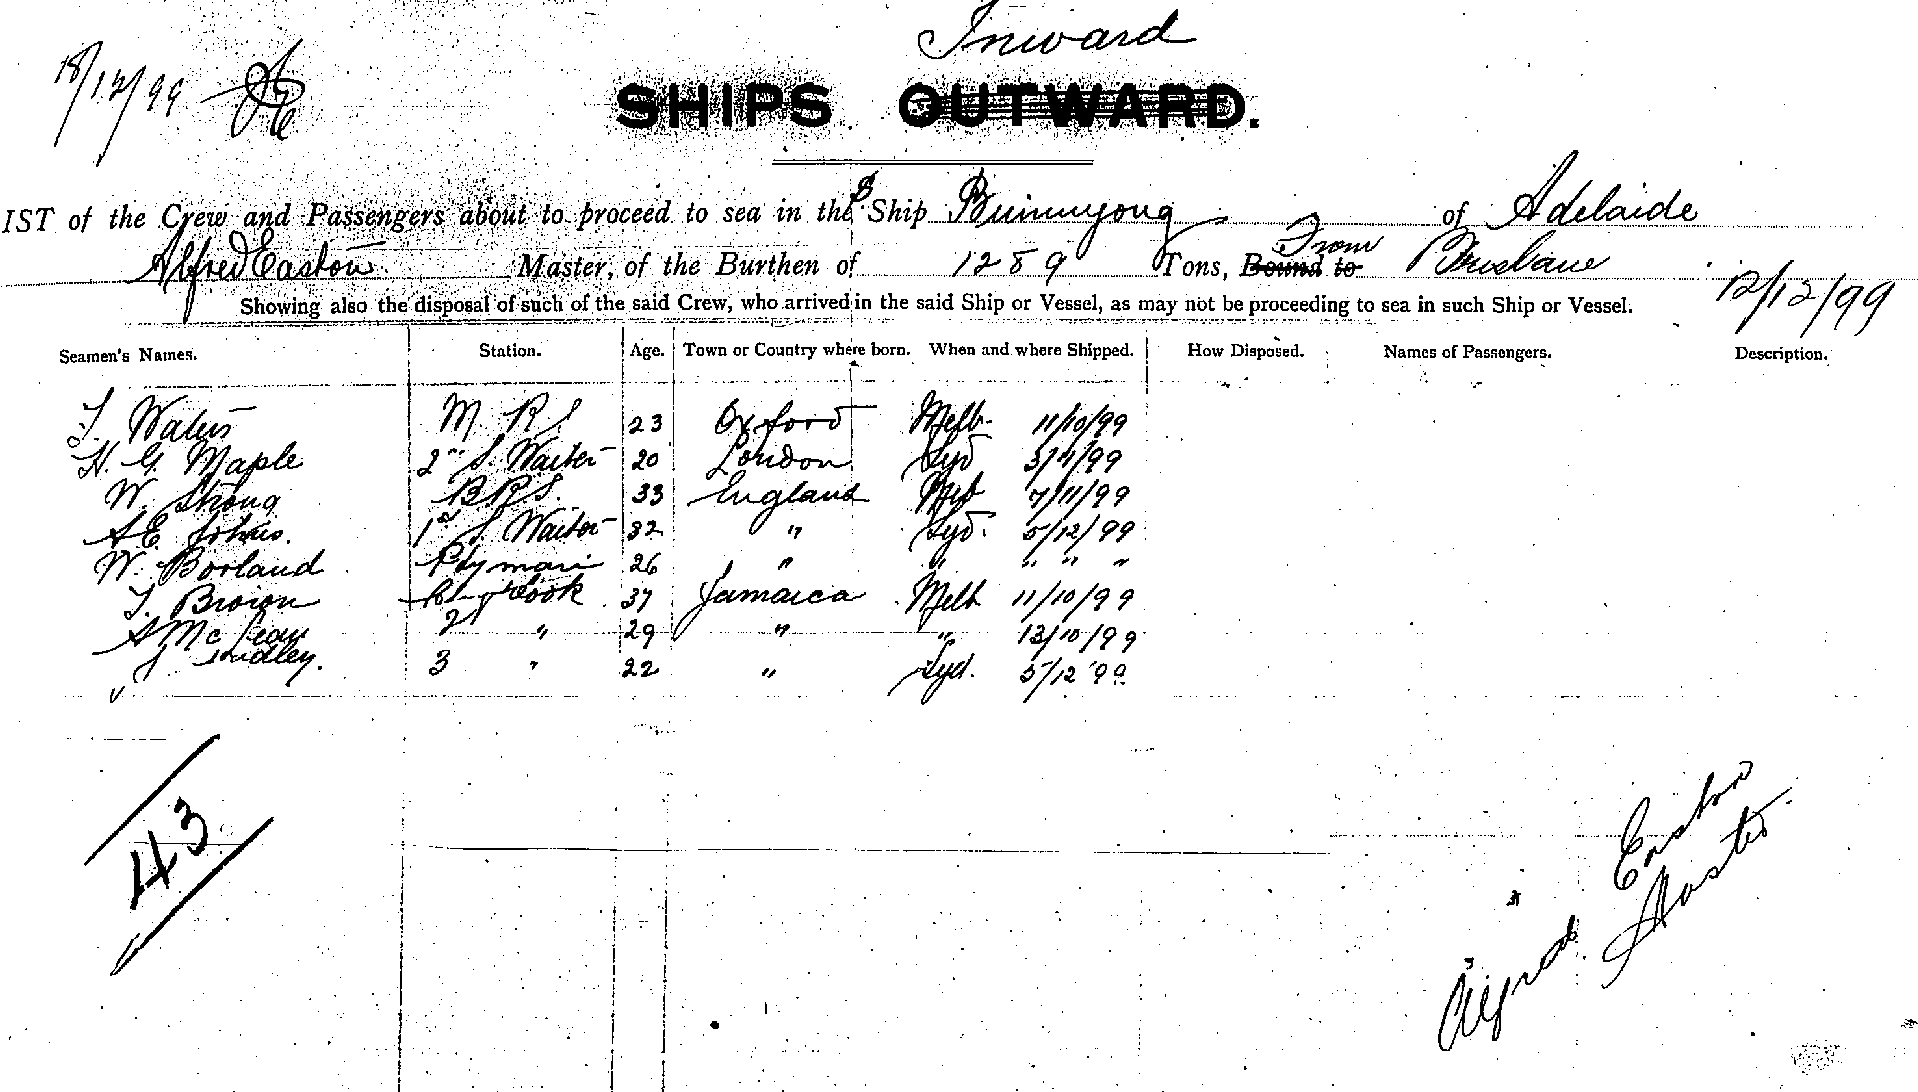 Inward
18/12/99
SHIPS OUTWARD.
IST of the Crew and Passengers about to proceed to sea in the S Ship Buninyong of Adelaide
Alfred Easton Master, of the Burthen of 1289 Tons, Bound to From Brisbane
12/12/99
Showing also the disposal of such of the said Crew, who arrived in the said Ship or Vessel, as may not be proceeding to sea in such Ship or Vessel.
Seamen's Names. Station. Age. Town or Country where born. When and where Shipped. How Disposed. Names of Passengers. Description.
M. R. S 23 Oxford Melb. 11/10/99
H. G. Maple 2nd S. Waiter 20 London Syd 99
W. Strong B.R.S. 33 England 7/11/99
A E. Johns. 1st S. Waiter 32 " Syd. 5/12/99
W. Borland Ptyman 26 " " " " "
T. Brown Cook 37 Jamaica Melb 11/10/99
A 2 " 29 " " 13/10/99
3 " 22 " Syd. 5/12/99
43
Alfred Easton
Master